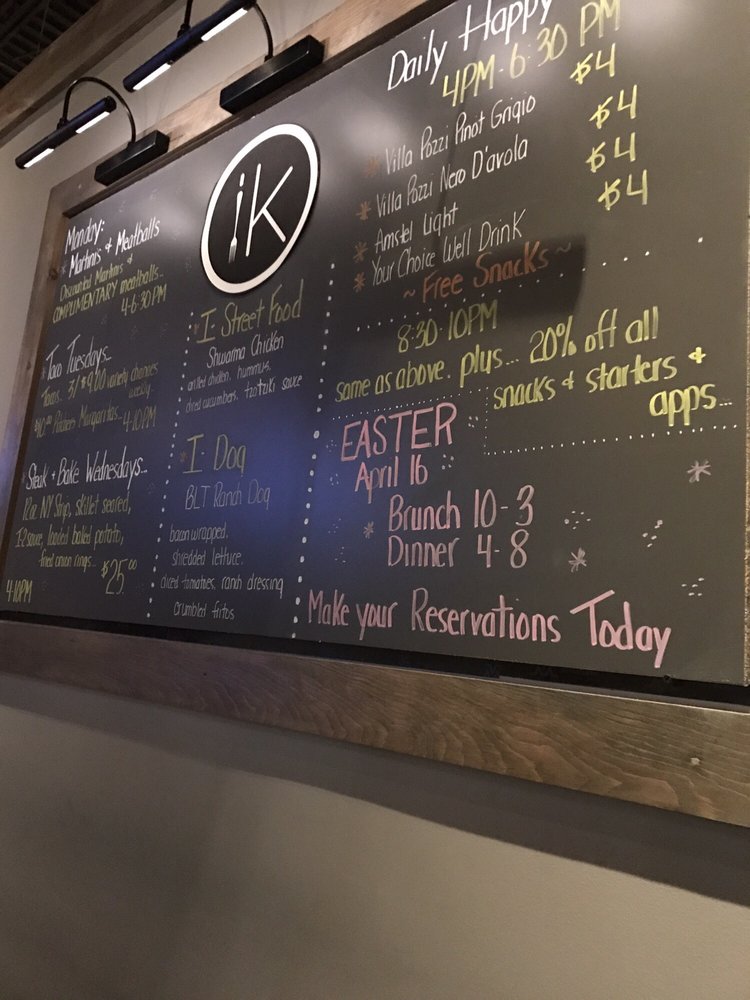 Monday:
* Martinis & Meatballs
Discounted Martinis &
COMPLIMENTARY meatballs..
4-6:30 PM
Taco Tuesdays...
Tacos.. 3/$9.00 variety changes
weekly
$10.00 Pitchers Margaritas... 4-10PM
Steak & Bake Wednesdays...
12oz NY Strip, skillet seared,
sauce, loaded baked potato,
fried onion rings... $25.00
4-10PM
iK
* I Street Food
Shwarma Chicken
grilled chicken, hummus,
diced cucumbers, tzatziki sauce
* I Dog
BLT Ranch Dog
bacon wrapped.
shredded lettuce.
diced tomatoes, ranch dressing
crumbled fritos
Daily Happy
4PM-6:30 PM
* Villa Pozzi Pinot Grigio $4
* Villa Pozzi Nero D'avola $4
* Amstel Light $4
* Your Choice Well Drink $4
~ Free Snacks ~
8:30-10PM
same as above. plus... 20% off all
snacks & starters &
apps...
EASTER
April 16
* Brunch 10-3
Dinner 4-8
Make your Reservations Today